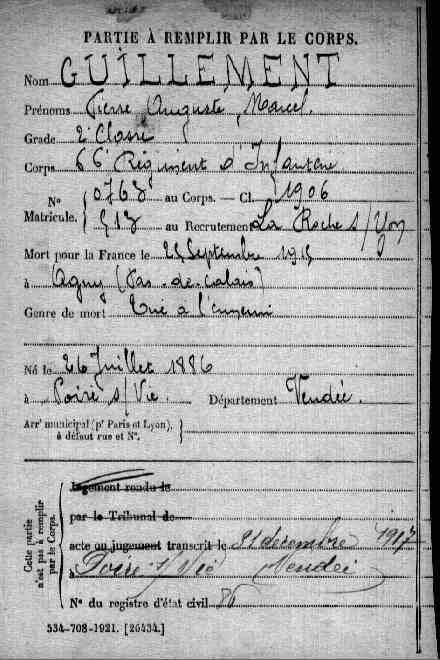 PARTIE À REMPLIR PAR LE CORPS.
Nom GUILLEMENT
Prénoms Pierre Auguste Marcel.
Grade 2e Classe
Corps 66e Régiment d'Infanterie
N° Matricule. { 0768 au Corps. — Cl. 1906
513 au Recrutement La Roche s/Yon
Mort pour la France le 25 Septembre 1915
à Agny (Pas-de-Calais)
Genre de mort Tué a l'ennemi
Né le 26 Juillet 1886
à Poiré s/Vie. Département Vendée.
Arrt municipal (pr Paris et Lyon), à défaut rue et N°. }
Cette partie n'est pas à remplir par le Corps.
Jugement rendu le
par le Tribunal de
acte ou jugement transcrit le 21 décembre 1917
à Poiré s/Vie Vendée
N° du registre d'état civil
534-708-1921. [26434.]